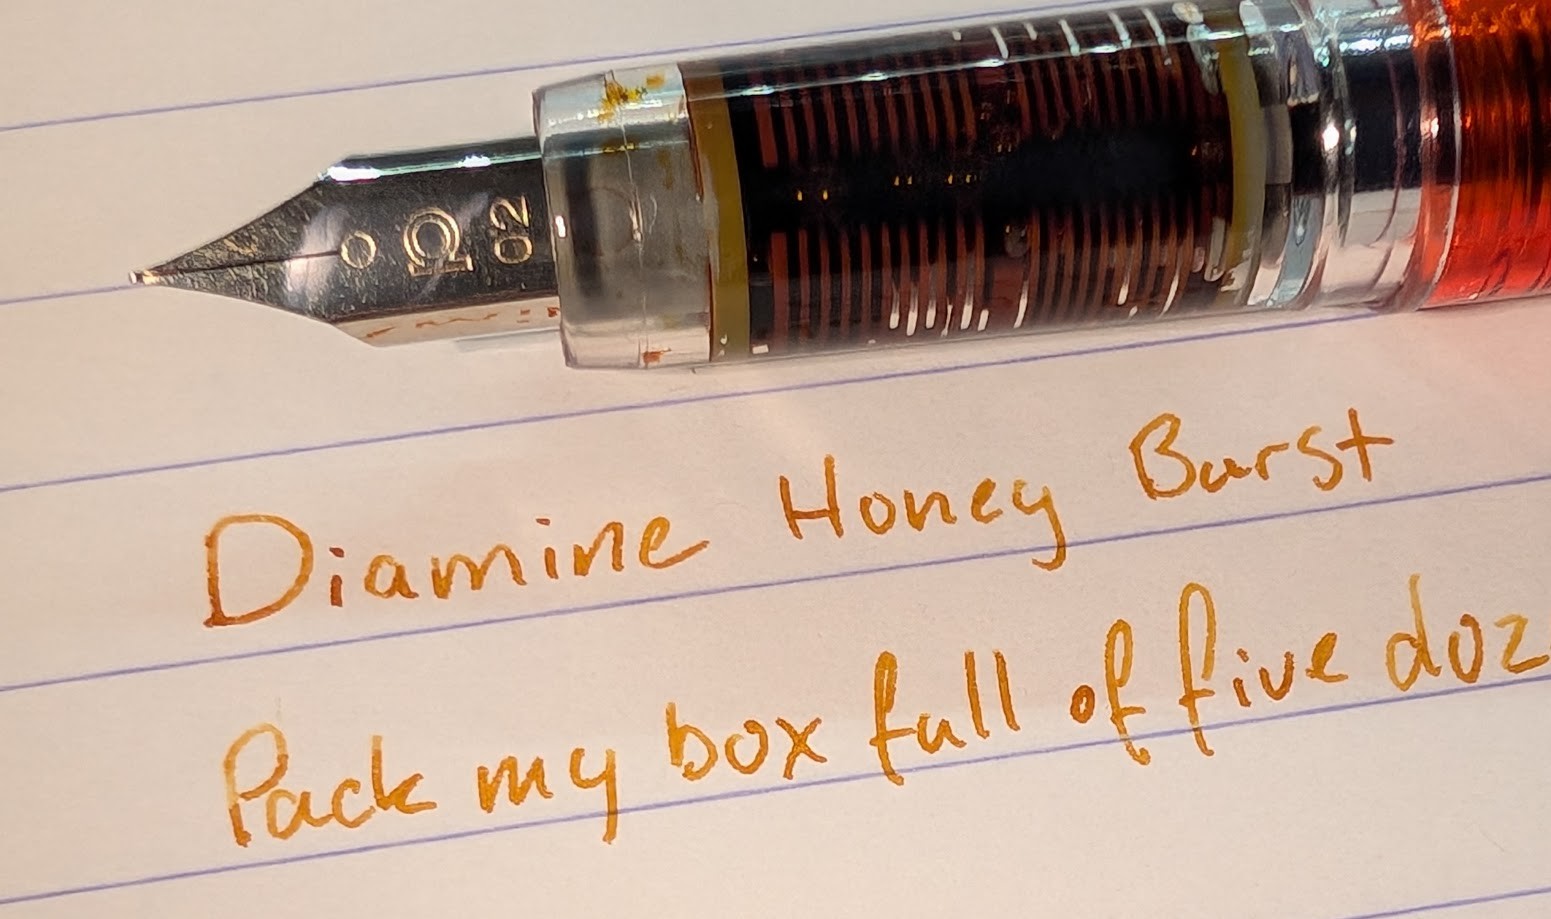 Ω 02
Diamine Honey Burst
Pack my box full of five doz